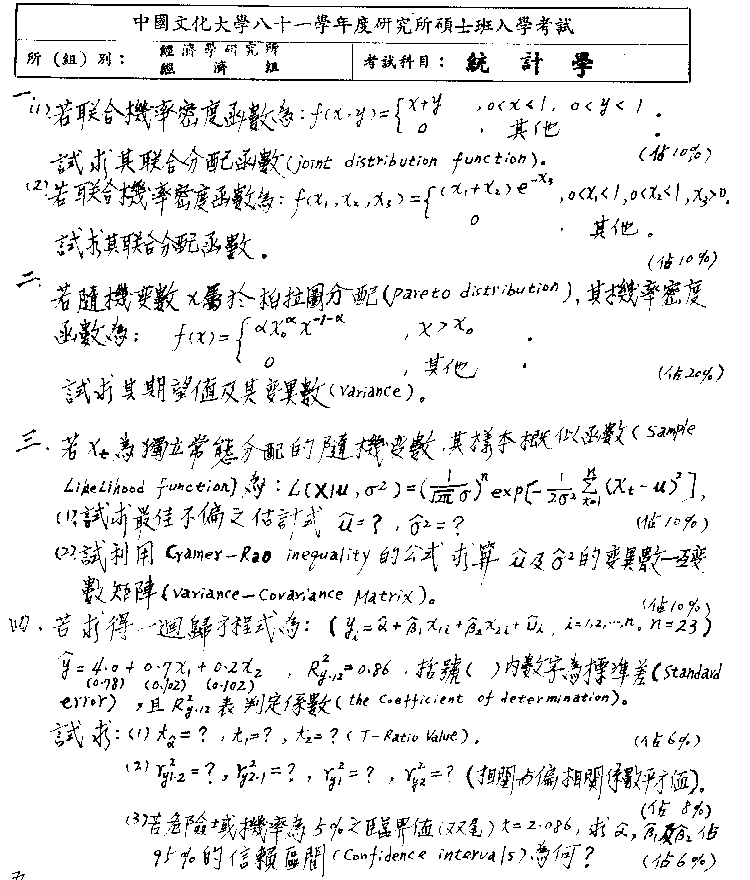 中國文化大學八十一學年度研究所碩士班入學考試
所(組)別: 經濟學研究所 經濟組 考試科目: 統計學
一、(1)若聯合機率密度函數為: f(x,y)={x+y , 0<x<1, 0<y<1 .
0 , 其他 .
試求其聯合分配函數(joint distribution function)。 (佔10%)
(2)若聯合機率密度函數為: f(x₁,x₂,x₃)={(x₁+x₂)e^{-x₃} , 0<x₁<1, 0<x₂<1, x₃>0.
0 . 其他。
試求其聯合分配函數。
(佔10%)
二、若隨機變數x屬於柏拉圖分配(pareto distribution), 其機率密度
函數為: f(x)={αx₀^α x^{-1-α} , x>x₀ .
0 , 其他 .
試求其期望值及其變異數(variance)。 (佔20%)
三、若X_t為獨立常態分配的隨機變數,其樣本概似函數(Sample
Likelihood function)為: L(X|u,σ²)=(1/√2π σ)^n exp[-1/2σ² Σ(X_t-u)²],
(1)試求最佳不偏之估計式 û=?, σ̂²=? (佔10%)
(2)試利用 Cramer-Rao inequality 的公式求算 û及σ̂²的變異數—互變
數矩陣(variance-Covariance Matrix)。 (佔10%)
四、若求得一迴歸方程式為: (y_i=α̂+β̂₁x₁ᵢ+β̂₂x₂ᵢ+û_i, i=1,2,…,n. n=23)
ŷ=4.0+0.7x₁+0.2x₂ , R²y.12=0.86 . 括號( )內數字為標準差(Standard
(0.78) (0.102) (0.102)
error) , 且R²y.12表判定係數(the Coefficient of determination)。
試求:(1) t_α̂=?, t₁=?, t₂=?(T-Ratio Value)。 (佔6%)
(2) r²y1.2=?, r²y2.1=?, r²y1=?, r²y2=? (相關與偏相關係數平方值)。
(佔8%)
(3)若危險域機率為5%之臨界值(双尾) t=2.086, 求α̂, β̂₁及β̂₂佔
95%的信賴區間(Confidence intervals)為何? (佔6%)